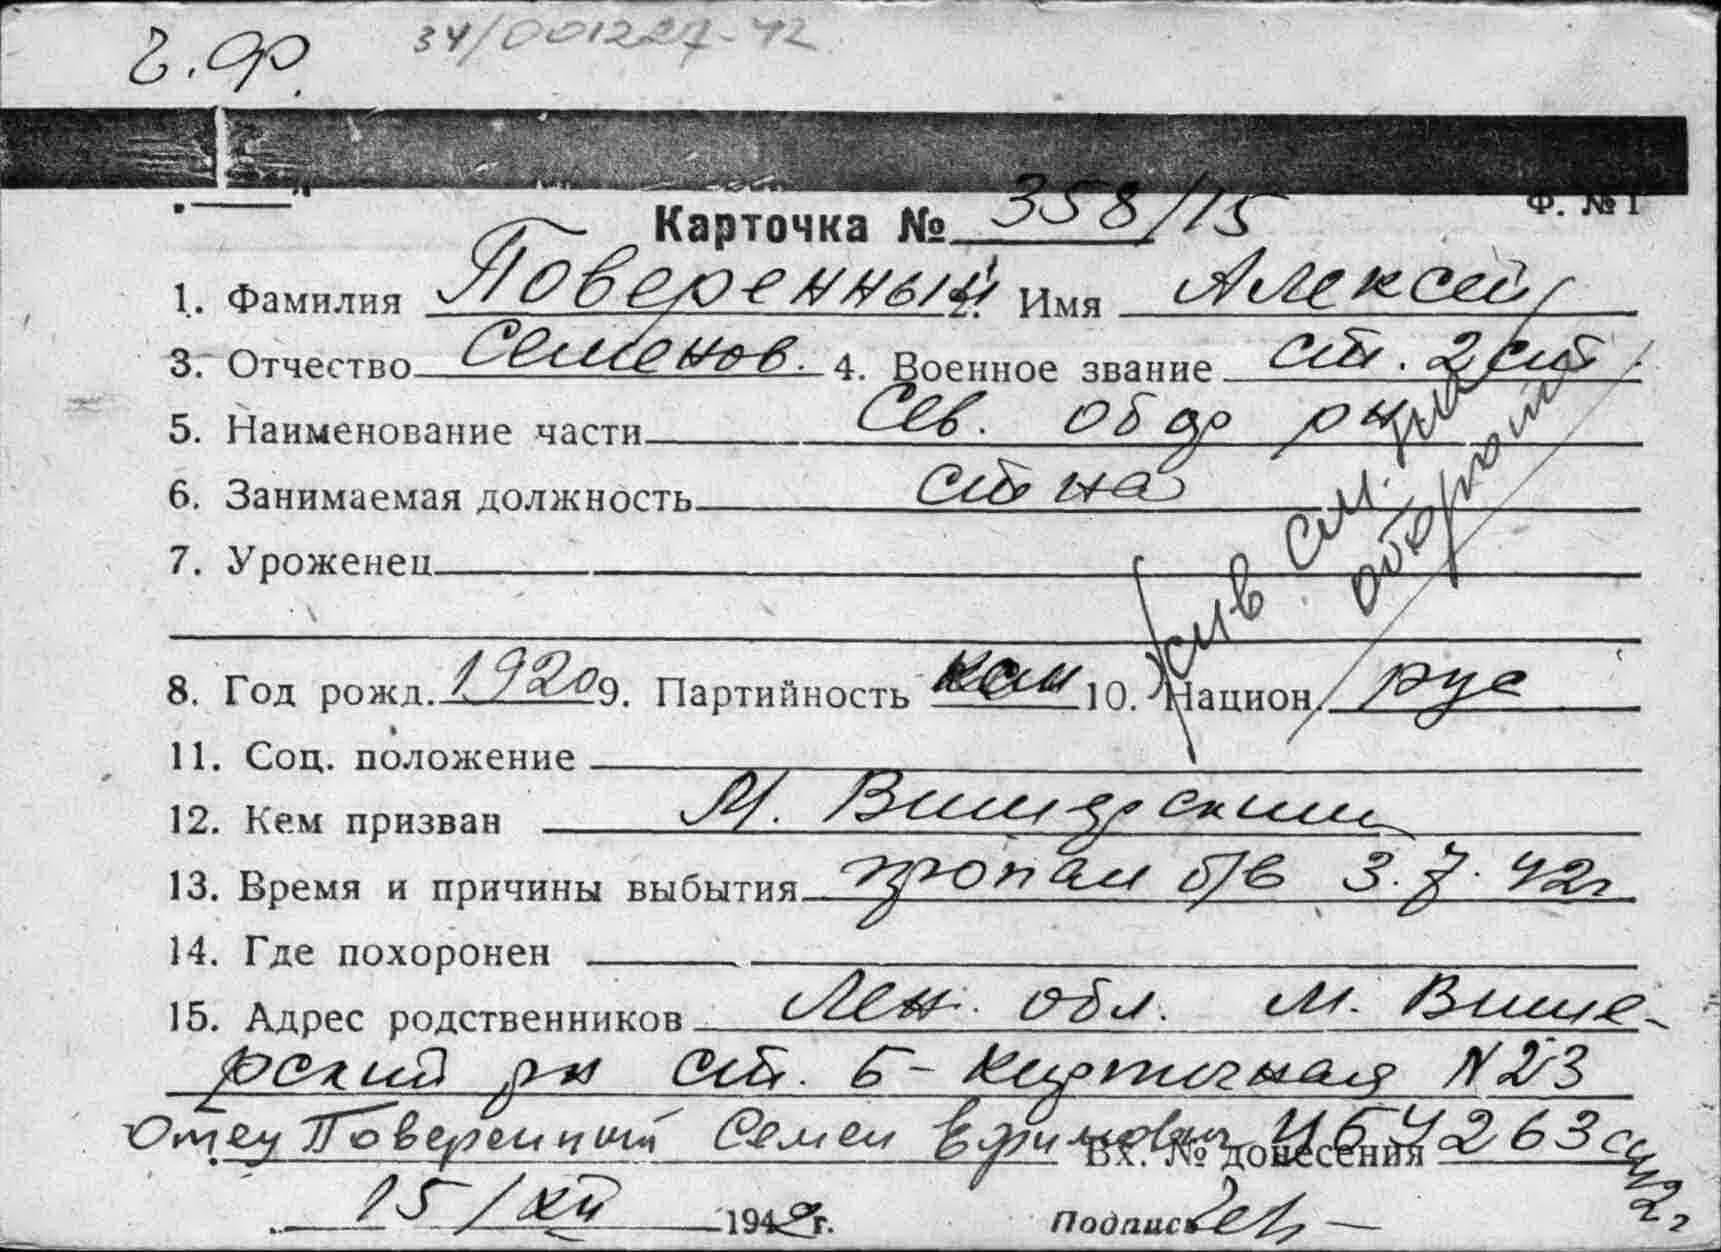 г. Ф. 34/001227-42
Ф. № 1
Карточка № 358/15
1. Фамилия Поверенный 2. Имя Алексей
3. Отчество Семенов. 4. Военное звание ст. 2 ст
5. Наименование части Сев. об др рн
6. Занимаемая должность ст на
7. Уроженец
жив см.
8. Год рожд. 1920 9. Партийность ксм 10. Национ. рус
11. Соц. положение
12. Кем призван М. Вишерским
13. Время и причины выбытия пропал б/в 3.7.42г
14. Где похоронен
15. Адрес родственников Лен. обл. М. Више-
рский рн ст. Б- №23
Отец Поверенный Семен Ефимович
Вх. № донесения
15/XII 1942г.
Подпись